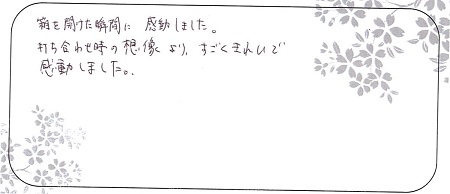 箱を開けた瞬間に 感動しました。
打ち合わせ時の想像より、すごくきれいで
感動しました。